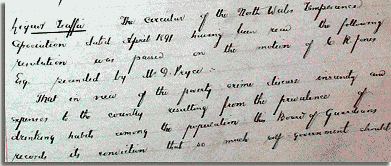 Liquor Traffic The circular of the North Wales Temperance
Association dated April 1891 having been read the following
resolution was passed on the motion of C. R. Jones
Esq seconded by Mr D. Pryce.
That in view of the poverty crime disease insanity and
expenses to the country resulting from the prevalence of
drinking habits among the population this Board of Guardians
records its conviction that so much self government should